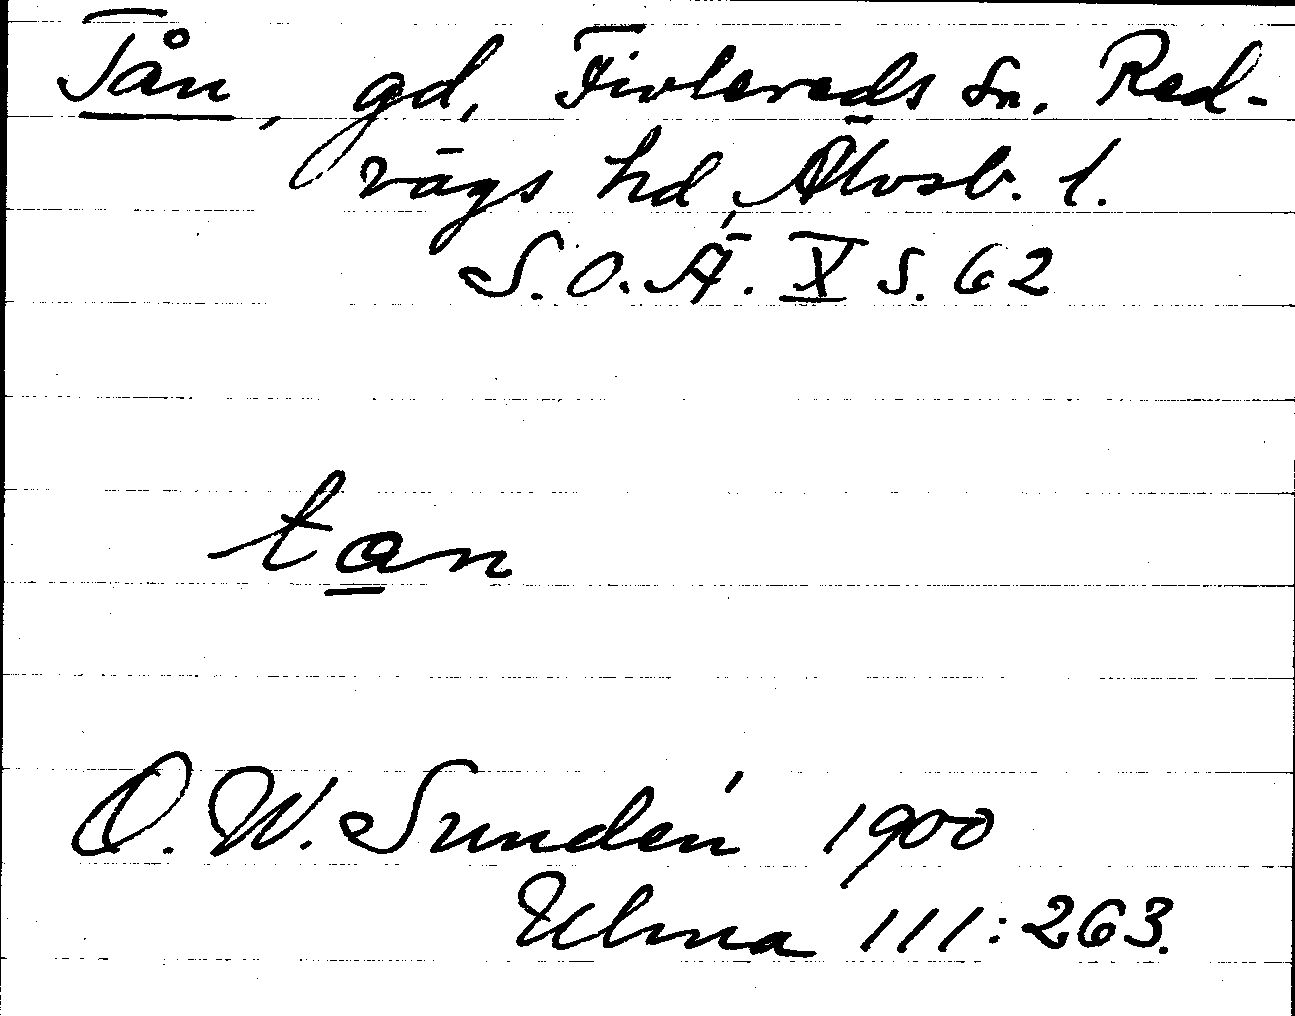 Tån, gd, Fivlereds sn. Red-
vägs hd, Älvsb. l.
S.O.Ä. X s. 62
tan
O.W. Sundén 1900
Ulma 111:263.